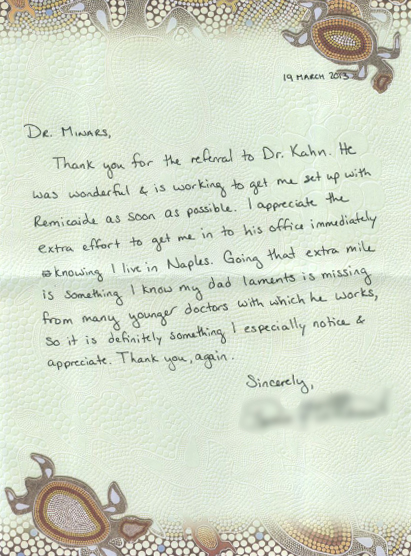 19 MARCH 2013
DR. MINARS,
Thank you for the referral to Dr. Kahn. He
was wonderful & is working to get me set up with
Remicaide as soon as possible. I appreciate the
extra effort to get me in to his office immediately
knowing I live in Naples. Going that extra mile
is something I know my dad laments is missing
from many younger doctors with which he works,
so it is definitely something I especially notice &
appreciate. Thank you, again.
Sincerely,